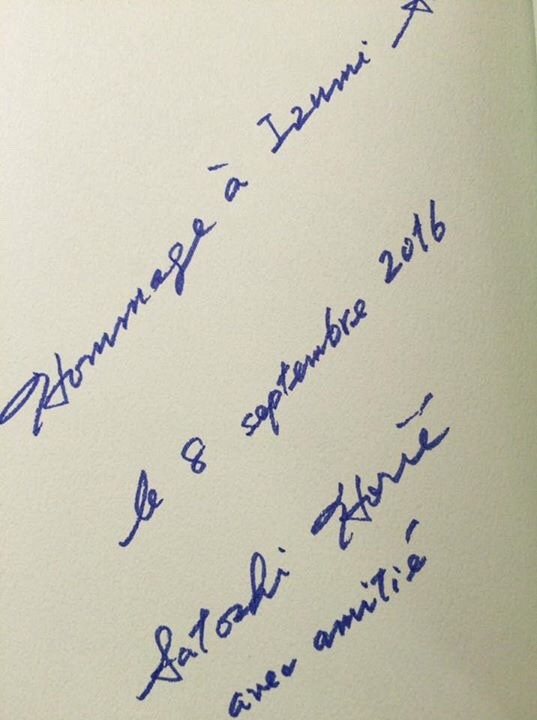 Hommage à Izumi
le 8 septembre 2016
Satoshi Horié
avec amitié